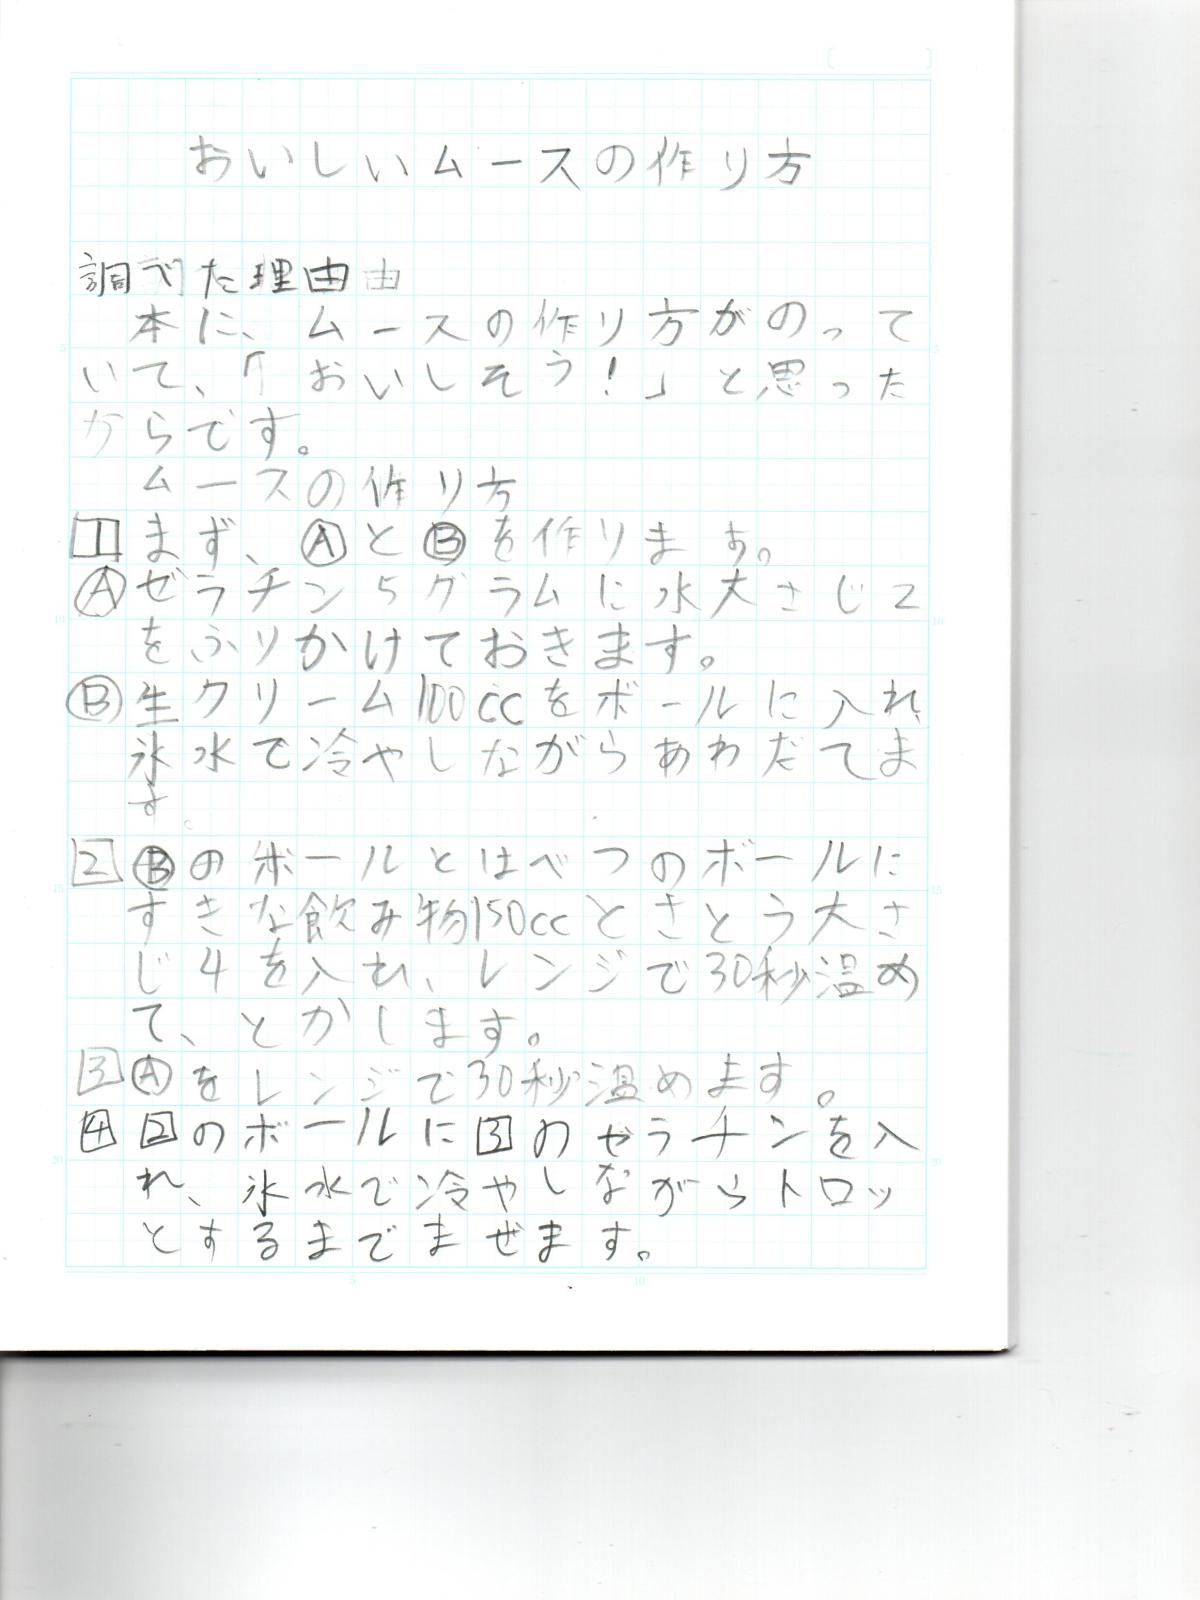 おいしいムースの作り方
調べた理由
本に、ムースの作り方がのって
いて、「おいしそう!」と思った
からです。
ムースの作り方
1 まず、Ⓐとⓑを作ります。
Ⓐ ゼラチン5グラムに水大さじ2
をふりかけておきます。
Ⓑ 生クリーム100ccをボールに入れ
氷水で冷やしながらあわだてま
す。
2 Ⓑのボールとはべつのボールに
すきな飲み物150ccとさとう大さ
じ4を入れ、レンジで30秒温め
て、とかします。
3 Ⓐをレンジで30秒温めます。
4 2のボールに3のゼラチンを入
れ、氷水で冷やしながらトロッ
とするまでまぜます。
5
10
15
20
5
10
15
20
5
10